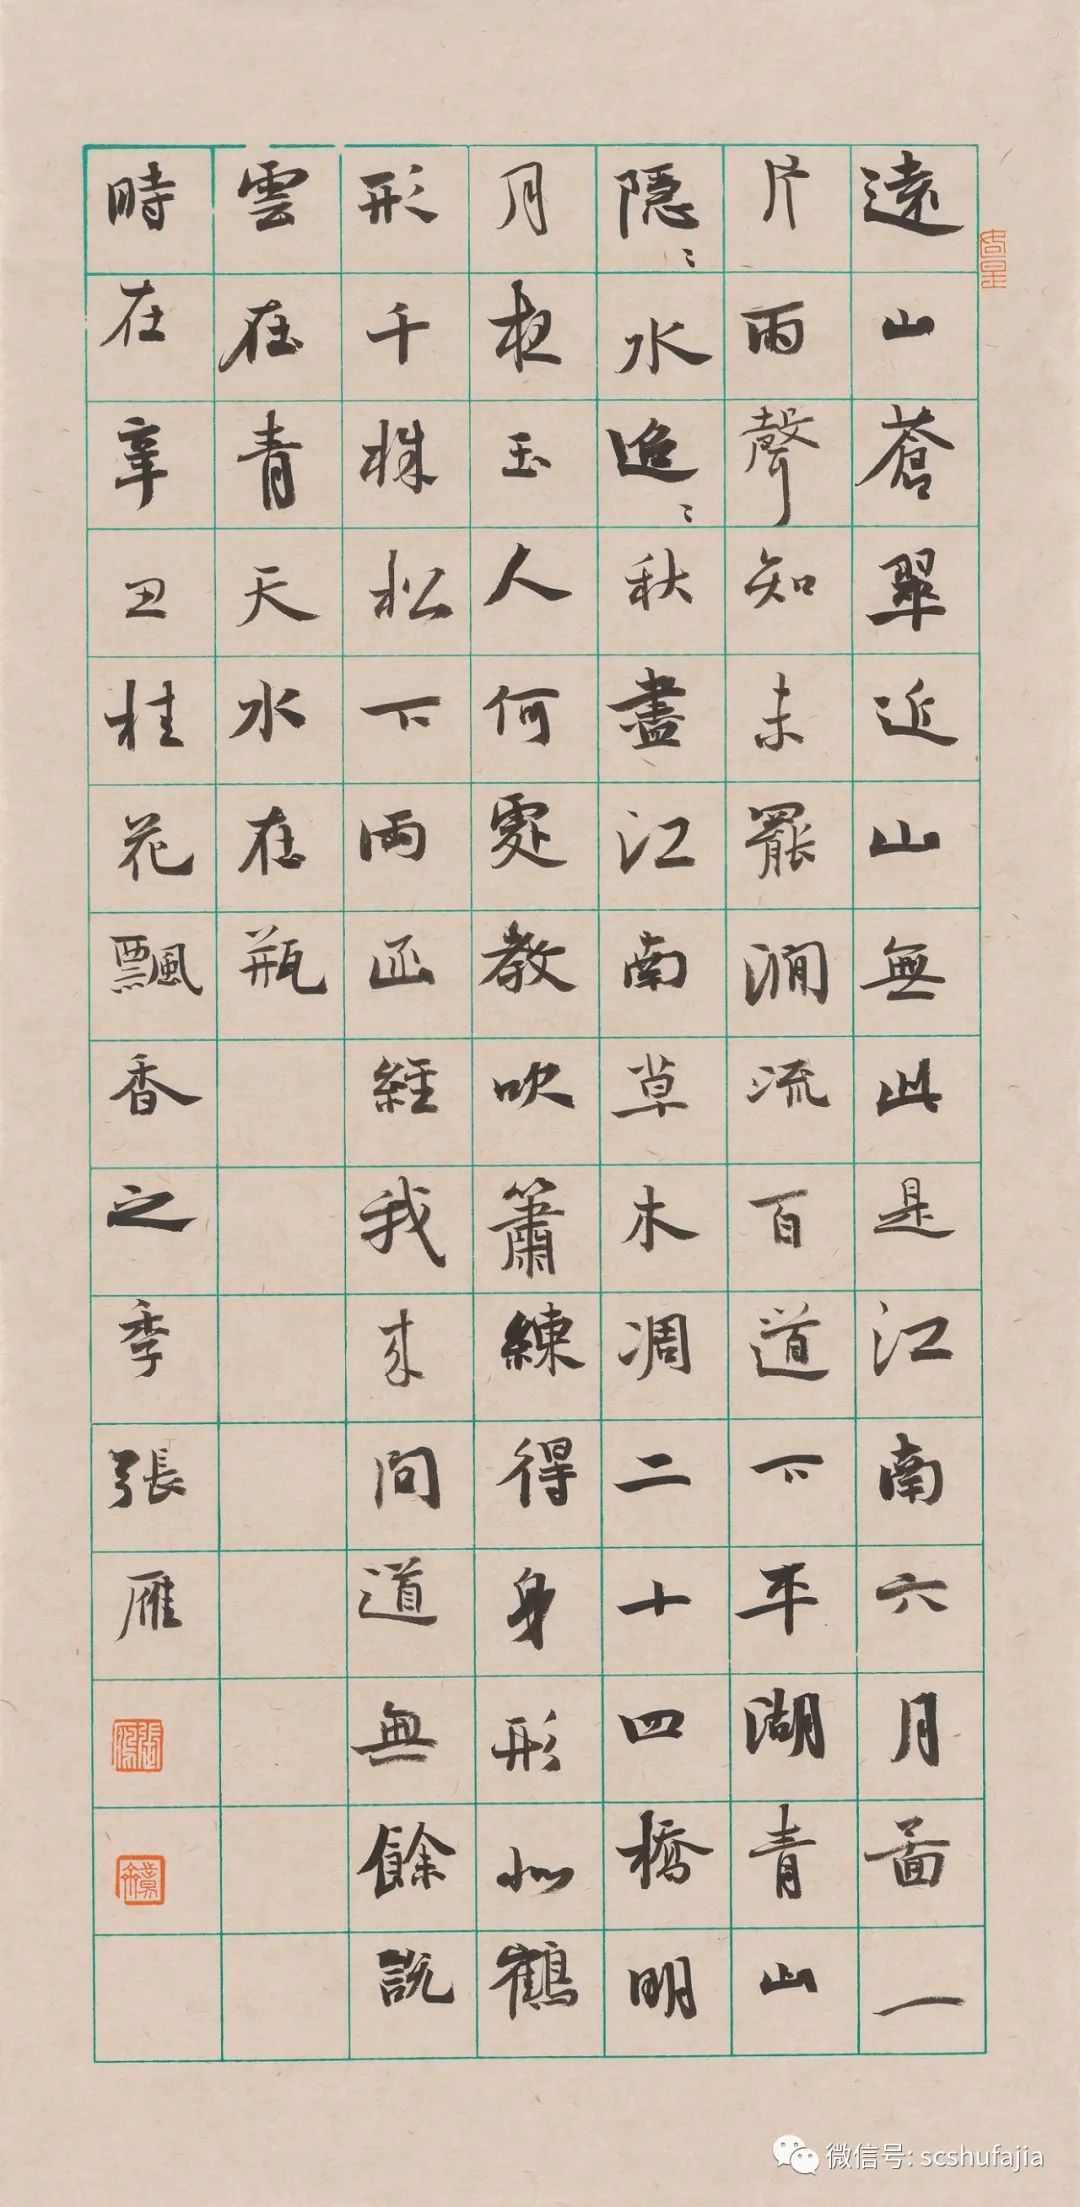 遠山蒼翠近山無此是江南六月啚一
片雨聲知未罷澗流百道下平湖青山
隱〻水迢〻秋盡江南草木凋二十四橋明
月夜玉人何處教吹簫練得身形似鶴
形千株松下兩函經我來問道無餘說
雲在青天水在瓶
時在辛丑桂花飄香之季張雁
微信号: scshufajia